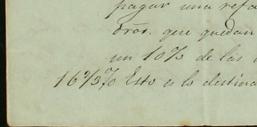 pagar una refa
brãs. que quedan
un 10% de las
16⅔% Esto es lo destina